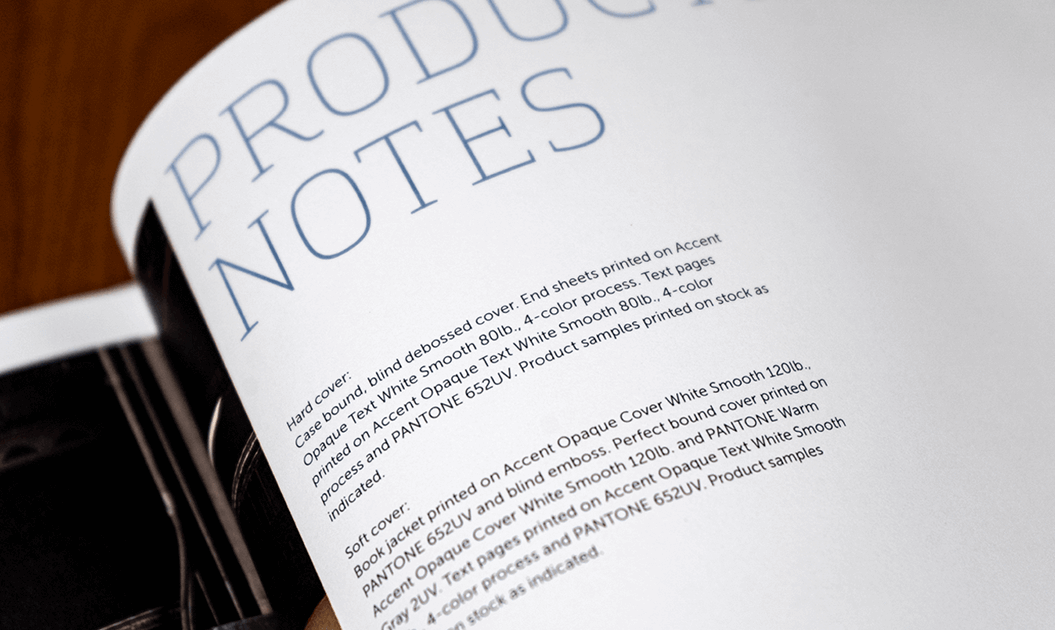 PRODUC
NOTES
Hard cover:
Case bound, blind debossed cover. End sheets printed on Accent
Opaque Text White Smooth 80lb., 4-color process. Text pages
printed on Accent Opaque Text White Smooth 80lb., 4-color
process and PANTONE 652UV. Product samples printed on stock as
indicated.
Soft cover:
Book jacket printed on Accent Opaque Cover White Smooth 120lb.,
PANTONE 652UV and blind emboss. Perfect bound cover printed on
Accent Opaque Cover White Smooth 120lb. and PANTONE Warm
Gray 2UV. Text pages printed on Accent Opaque Text White Smooth
4-color process and PANTONE 652UV. Product samples
on stock as indicated.